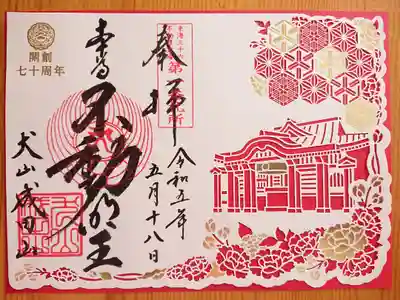 奉拝
令和五年
五月十八日
本尊不動明王
開創
七十周年
犬山成田山